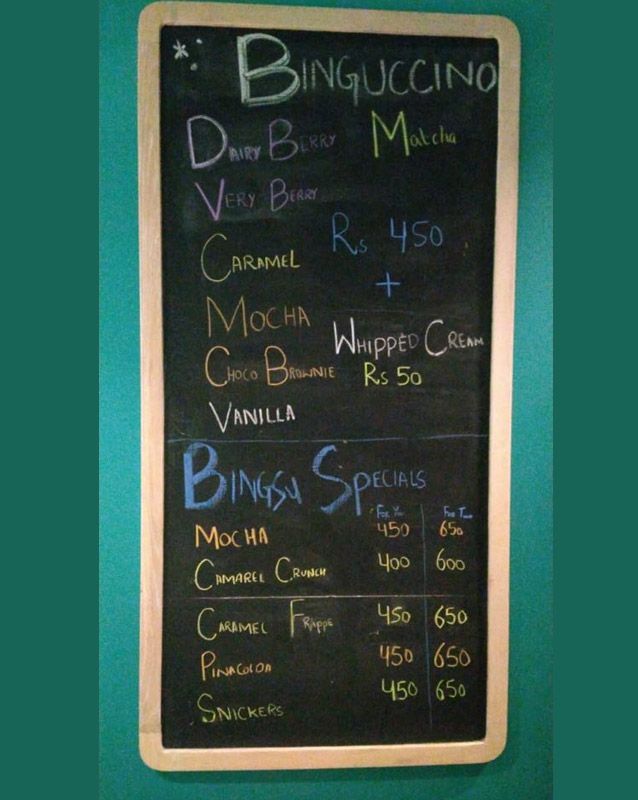 * : BINGUCCINO
DAIRY BERRY MATcha
VERY BERRY
Rs 450
CARAMEL
+
MOCHA
WHIPPED CREAM
CHOCO BROWNIE Rs 50
VANILLA
BINGSU SPECIALS
FOR YOU FOR TWO
MOCHA 450 650
CAMAREL CRUNCH 400 600
CARAMEL FRAPPE 450 650
PINACOLDA 450 650
SNICKERS 450 650